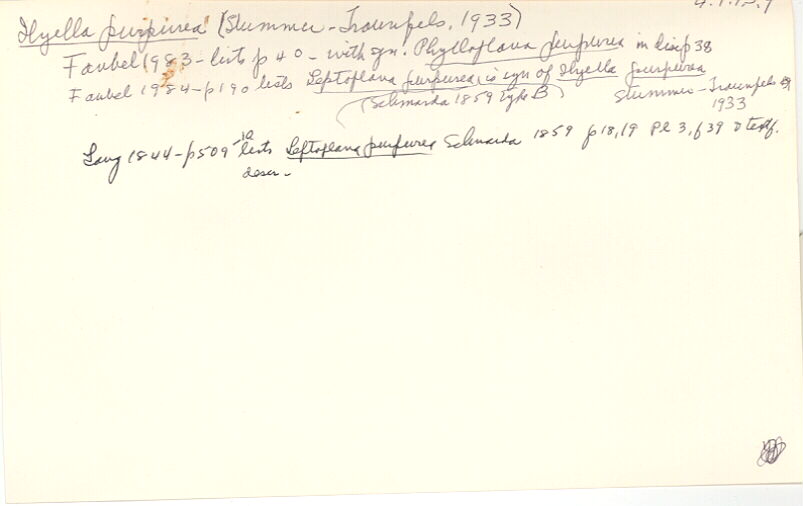 4.1.15.9
Ilyella purpurea (Stummer-Traunfels, 1933)
Faubel 1983 - lists p 40 - with syn. Phylloplana purpurea in disc p 38
Faubel 1984 - p 190 lists Leptoplana purpurea is syn of Ilyella purpurea
(Schmarda 1859 type B) Stummer-Traunfels
1933
Lang 1844 - p 509-10 lists Leptoplana purpurea Schmarda 1859 p 18, 19 Pl 3, f 39 & textf.
descr.